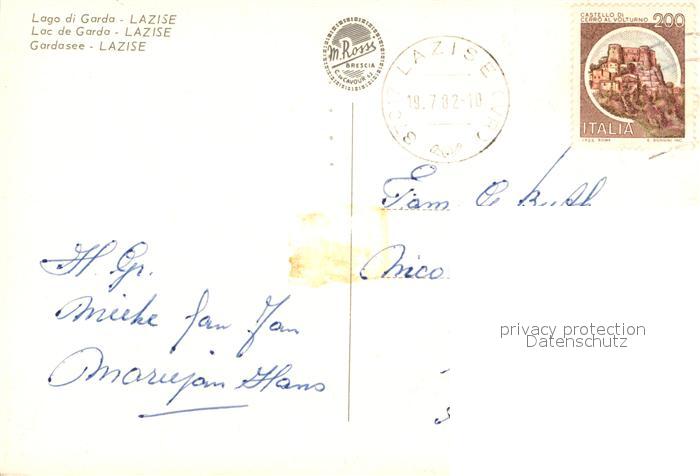 Lago di Garda - LAZISE
Lac de Garda - LAZISE
Gardasee - LAZISE
M. Rossi
BRESCIA
C. CAVOUR 42
LAZISE
19.7.82-10
CASTELLO DI
CERRO AL VOLTURNO
200
ITALIA
Fam
Nico
H. Gr.
Mieke Jan Jan
Marusjan Hans
privacy protection
Datenschutz